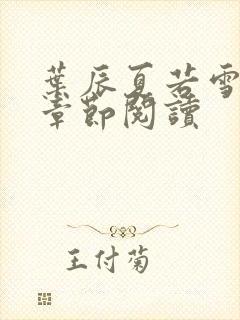 葉辰夏若雪
章節閱讀
王付菊